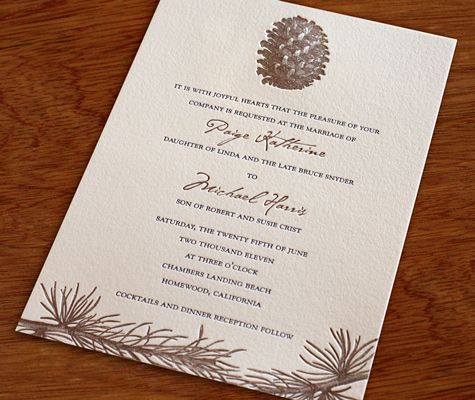 IT IS WITH JOYFUL HEARTS THAT THE PLEASURE OF YOUR
COMPANY IS REQUESTED AT THE MARRIAGE OF
Paige Katherine
DAUGHTER OF LINDA AND THE LATE BRUCE SNYDER
TO
Michael Harris
SON OF ROBERT AND SUSIE CRIST
SATURDAY, THE TWENTY FIFTH OF JUNE
TWO THOUSAND ELEVEN
AT THREE O'CLOCK
CHAMBERS LANDING BEACH
HOMEWOOD, CALIFORNIA
COCKTAILS AND DINNER RECEPTION FOLLOW